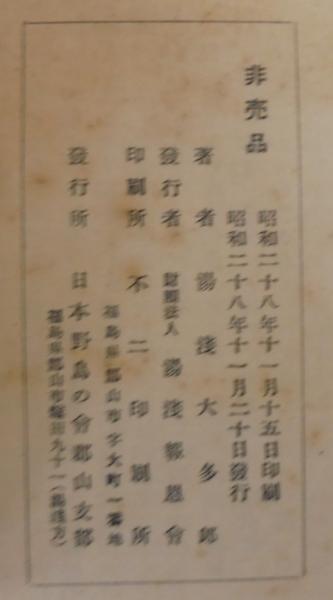 非売品
昭和二十八年十一月十五日印刷
昭和二十八年十一月二十日發行
著者 湯淺大多郎
發行者 財團法人 湯淺報恩會
印刷所 不二印刷所
福島縣郡山市字大町一番地
發行所 日本野鳥の會郡山支部
福島縣郡山市堂前九十一(湯淺方)